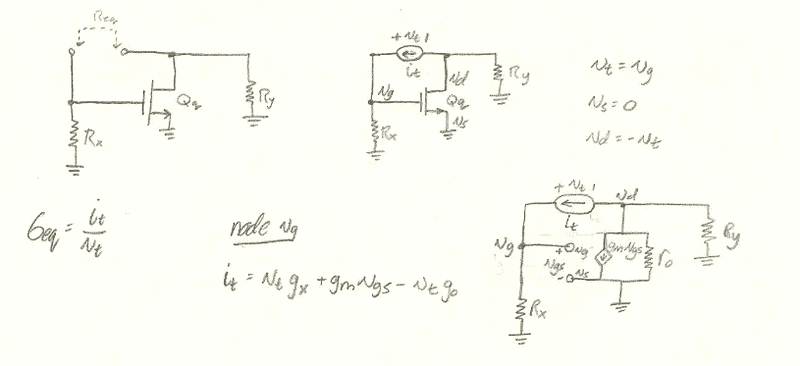 Req
Qq
Rx
Ry
+ Vt -
it
Vg
Vd
Qq
Vs
Rx
Ry
Vt = Vg
Vs = 0
Vd = -Vt
Geq = it/Vt
node Vg
it = Vt gx + gm Vgs - Vt go
+ Vt -
it
Vd
Vg
+ Vg
Vgs
- Vs
gmVgs
ro
Ry
Rx